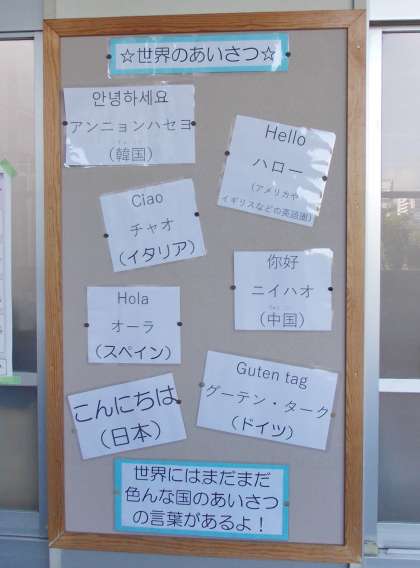 ☆世界のあいさつ☆
안녕하세요
アンニョンハセヨ
(韓国)
Hello
ハロー
(アメリカや
イギリスなどの英語圏)
Ciao
チャオ
(イタリア)
你好
ニイハオ
(中国)
Hola
オーラ
(スペイン)
Guten tag
グーテン・ターク
(ドイツ)
こんにちは
(日本)
世界にはまだまだ
色んな国のあいさつ
の言葉があるよ！